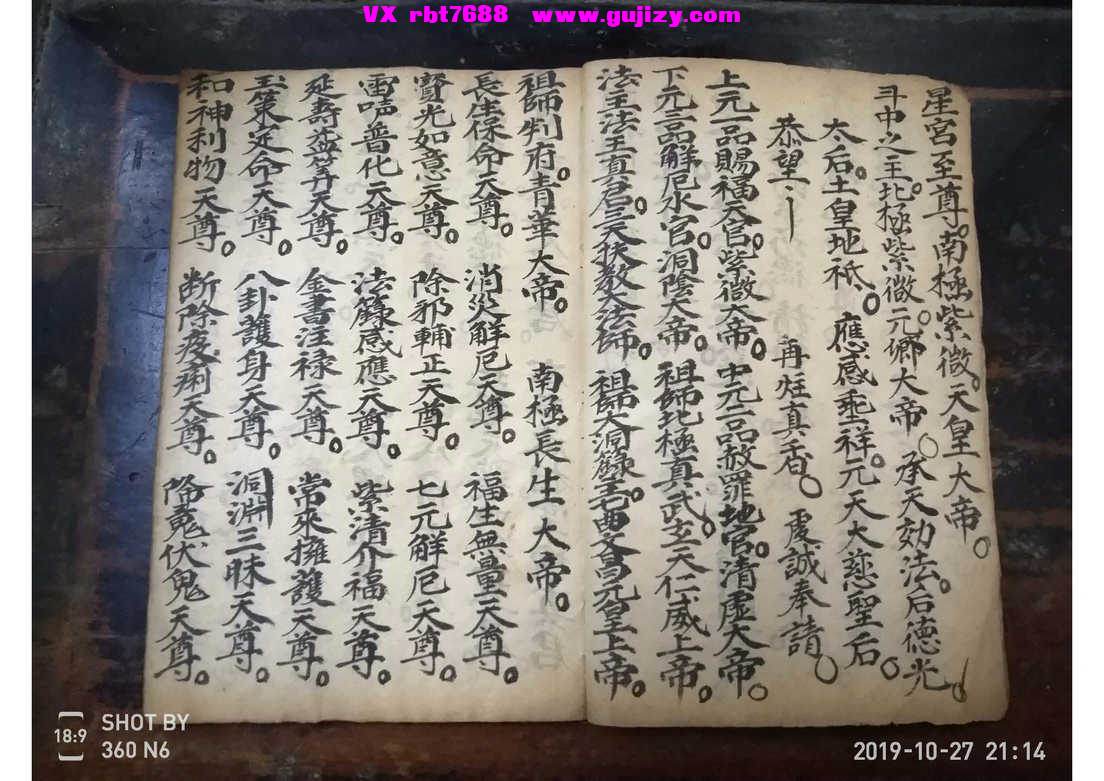 VX rbt7688 www.gujizy.com
星宮至尊。南極紫微。天皇大帝。
斗中之主。北極紫微元卿大帝。承天効法。后德光。
太后土皇地祇。應感垂祥。元天大慈聖后。
恭望〻 再炷真香。虔誠奉請。
上元一品賜福天官。紫微大帝。中元二品赦罪地官。清虛大帝。
下元三品解厄水官。洞陰大帝。祖師北極真武玄天仁威上帝。
法主法王真君。三天扶教大法師。祖師大洞籙主。文昌元皇上帝。
祖師判府。青華大帝。 南極長生大帝。
長生保命天尊。 消災解厄天尊。 福生無量天尊。
寶光如意天尊。 除邪輔正天尊。 七元解厄天尊。
雷声普化天尊。 法籙感應天尊。 紫清介福天尊。
延壽益算天尊。 金書注禄天尊。 常來擁護天尊。
玉策定命天尊。 八卦護身天尊。 洞淵三昧天尊。
和神利物天尊。 断除疫痢天尊。 降魔伏鬼天尊。
18:9
SHOT BY
360 N6
2019-10-27 21:14